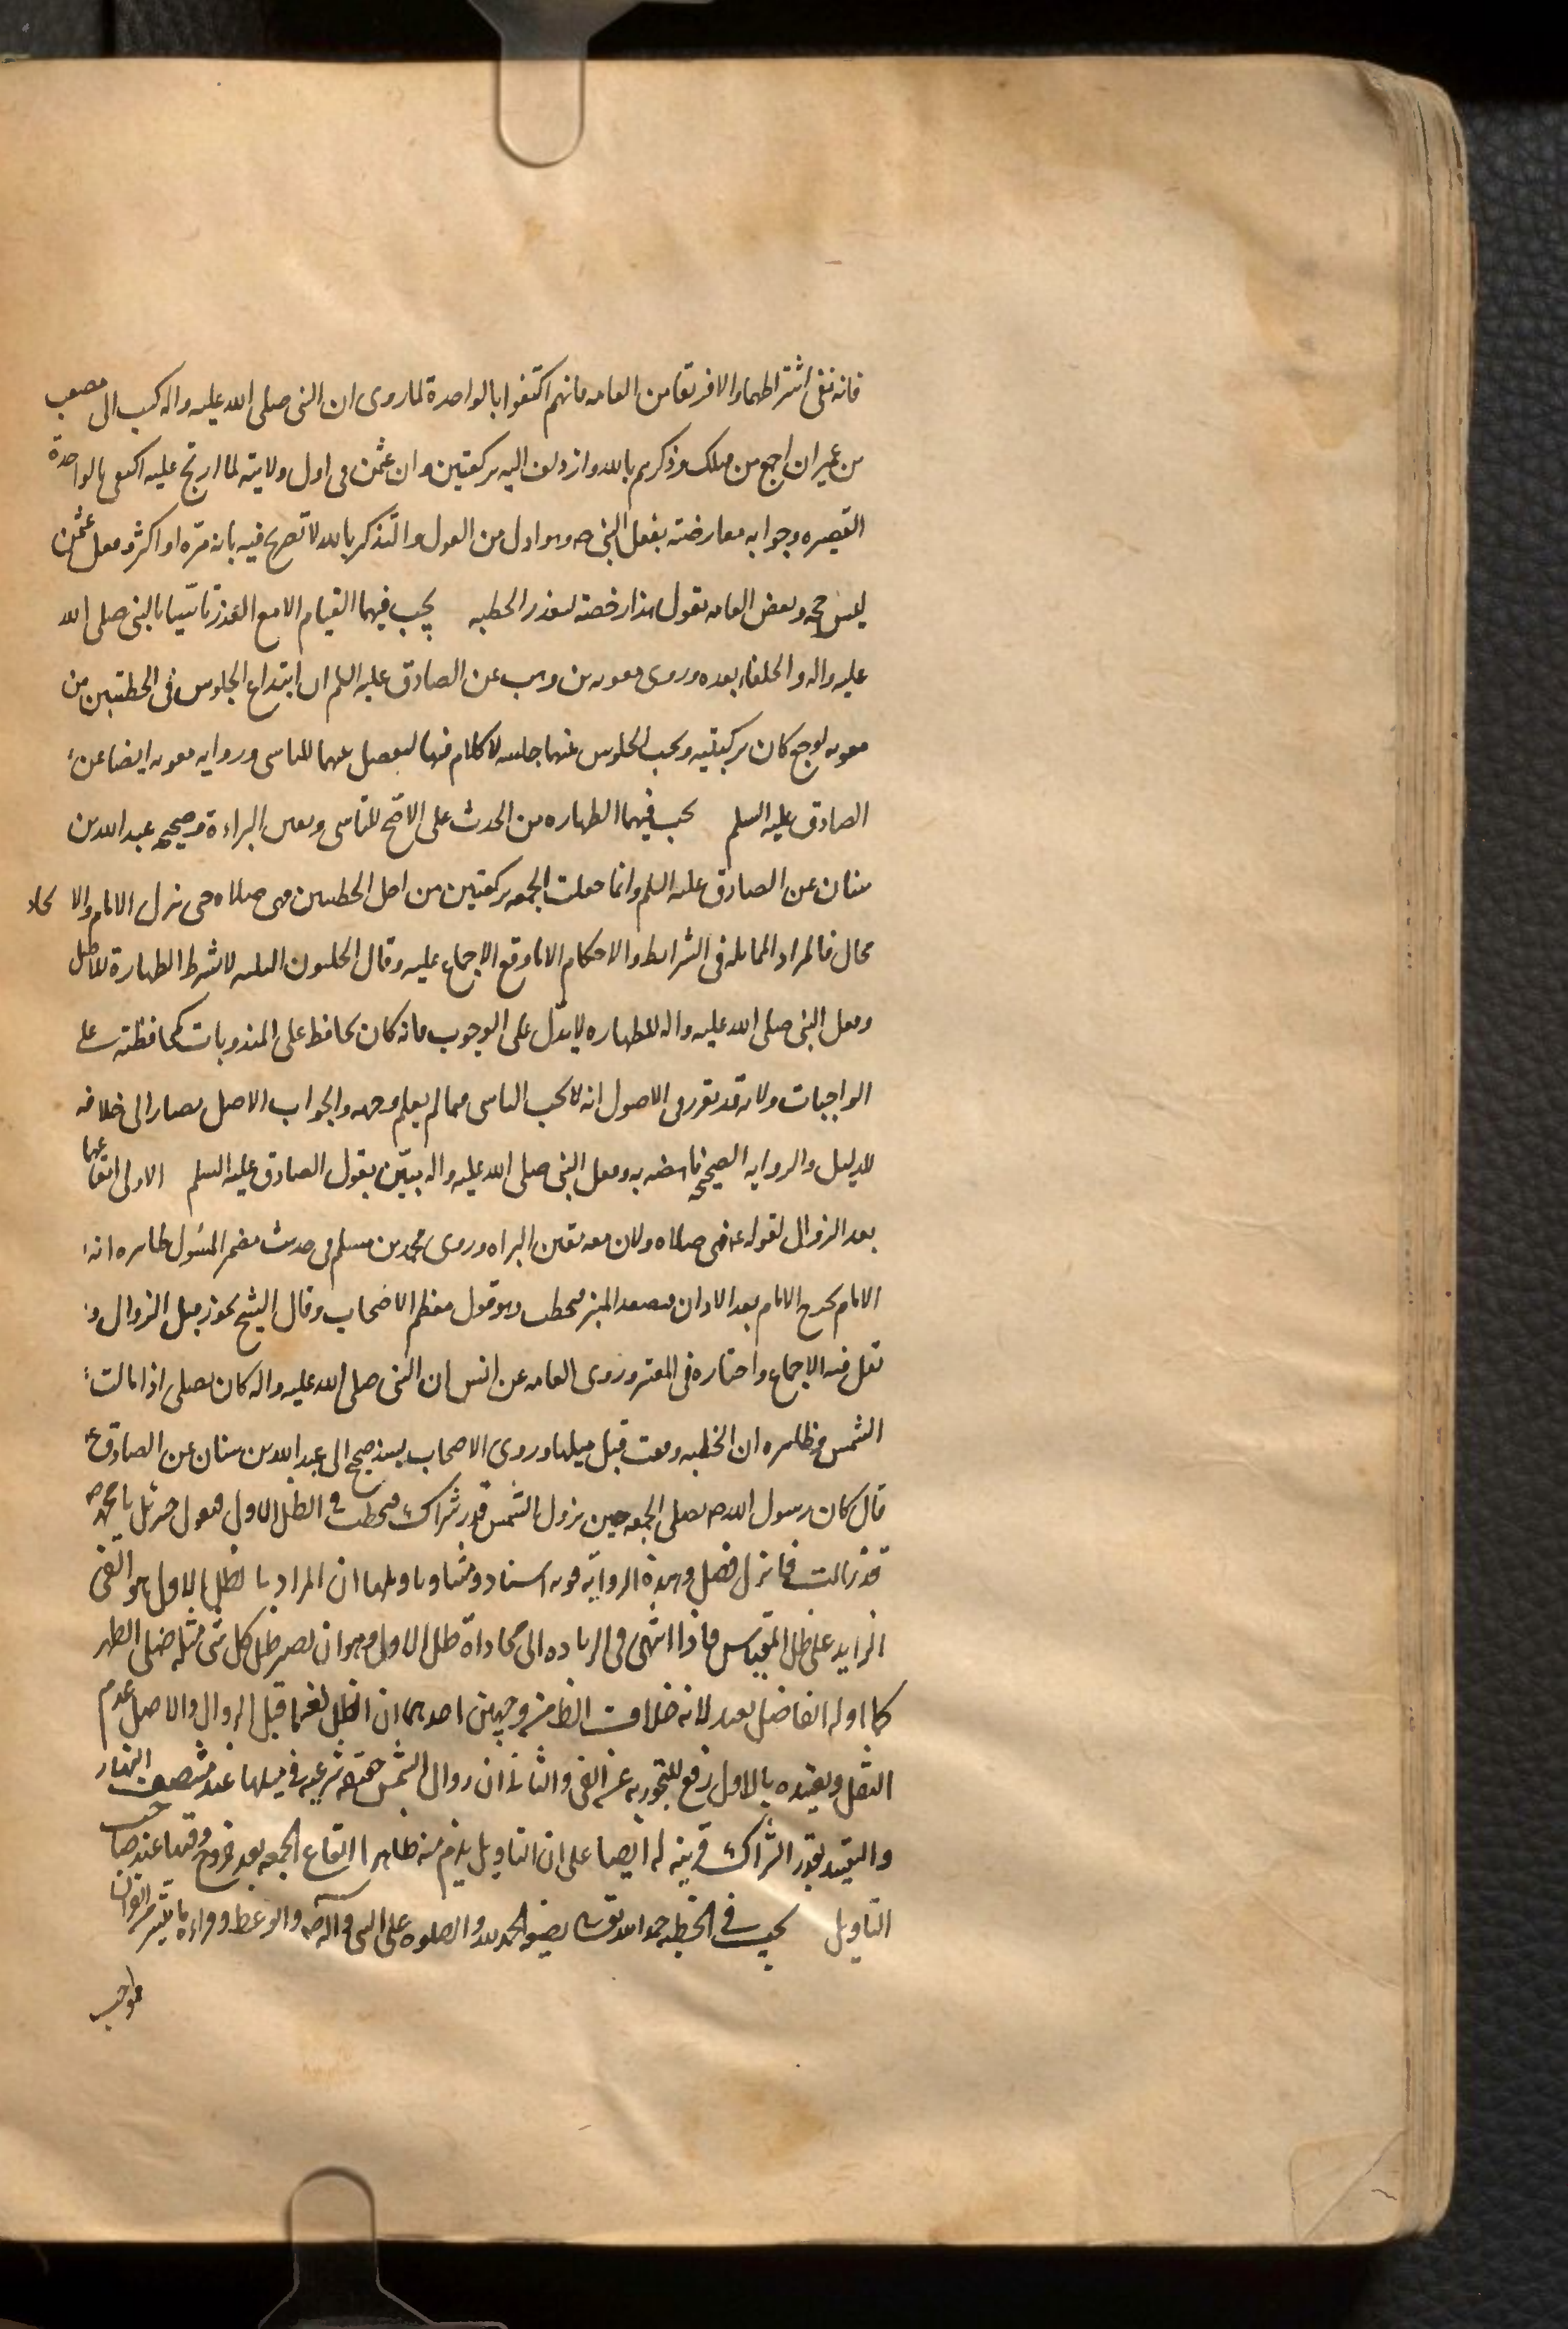 فانه نفى اشتراطهما والا فريقا من العامه فانهم اكتفوا بالواحدة لما روى ان النبى صلى الله عليه واله كتب الى مصعب
بن عمير ان اجمع من قبلك وذكرهم بالله وازدلف اليه بركعتين وان عثمن فى اول ولايته لما ارتج عليه اكتفى بالواحدة
القصيره وجوابه معارضته بفعل النبى صه وهو ادل من القول والتذكر بالله لا تصريح فيه بانه مرة او اكثر وفعل عثمن
ليس حجه وبعض العامه يقول هذا رخصه لعذر الخطبه يجب فيهما القيام الا مع العذر تاسيا بالنبى صلى الله
عليه واله والخلفاء بعده وروى معويه بن وهب عن الصادق عليه السلم ان ابتداع الجلوس فى الخطبتين من
معويه لوجع كان بركبتيه ويجب الجلوس بينهما جلسه لا كلام فيها ليفصل بينهما للتاسى وروايه معويه ايضا عن
الصادق عليه السلم يجب فيهما الطهاره من الحدث على الاصح للتاسى ويقين البراءة وصحيح عبد الله بن
سنان عن الصادق عليه السلم وانما جعلت الجمعه ركعتين من اجل الخطبتين فهى صلاه حتى ينزل الامام والاتحاد
محال فالمراد المماثله فى الشرايط والاحكام الا ما وقع الاجماع عليه وقال الحليون الثلثه لا يشترط الطهارة للاصل
وفعل النبى صلى الله عليه واله للطهاره لا يدل على الوجوب فانه كان يحافظ على المندوبات كمحافظته على
الواجبات ولانه قد تقرر فى الاصول انه لا يجب التاسى فيما لم يعلم وجهه والجواب الاصل يصار الى خلافه
للدليل والروايه الصحيحه ناهضه به وفعل النبى صلى الله عليه واله تبين بقول الصادق عليه السلم الاولى ايقاعهما
بعد الزوال لقوله ع فهى صلاه ولان معه يقين البراه وروى محمد بن مسلم فى حديث مضمر المسول ظاهره انه
الامام يخرج الامام بعد الاذان فيصعد المنبر فيخطب وهو قول معظم الاصحاب وقال الشيخ يجوز قبل الزوال و
نقل فيه الاجماع واختاره فى المعتبر وروى العامه عن انس ان النبى صلى الله عليه واله كان يصلى اذا مالت
الشمس وظاهره ان الخطبه وقعت قبل ميلها وروى الاصحاب بسند صحيح الى عبد الله بن سنان عن الصادق ع
قال كان رسول الله صه يصلى الجمعه حين تزول الشمس قدر شراك ويخطب فى الظل الاول فيقول جبرئيل يا محمد صه
قد زالت فانزل فصل وهذه الروايه قويه اسنادا ومتنا وتاويلها ان المراد بالظل الاول هو الفى
الزايد على ظل المقياس فاذا انتهى فى الزياده الى محاذاة ظل الاول وهو ان يصير ظل كل شى مثله صلى الظهر
كما اوله الفاضل بعيد لانه خلاف الظاهر من وجهين احدهما ان الظل لغة ما قبل الزوال والاصل عدم
النقل وتقييده بالاول رفع للتجوز به عن الفى والثانى ان زوال الشمس حقيقه شرعيه فى ميلها عند منتصف النهار
والتقييد بقدر الشراك قرينه له ايضا على ان التاويل يلزم منه ظاهرا ايقاع الجمعه بعد خروج وقتها عند صاحب
التاويل يجب فى الخطبه حمد الله تعالى بصيغه الحمد لله والصلوه على النبى وآله صه والوعظ وقراءه ما تيسر من القران
فواجب